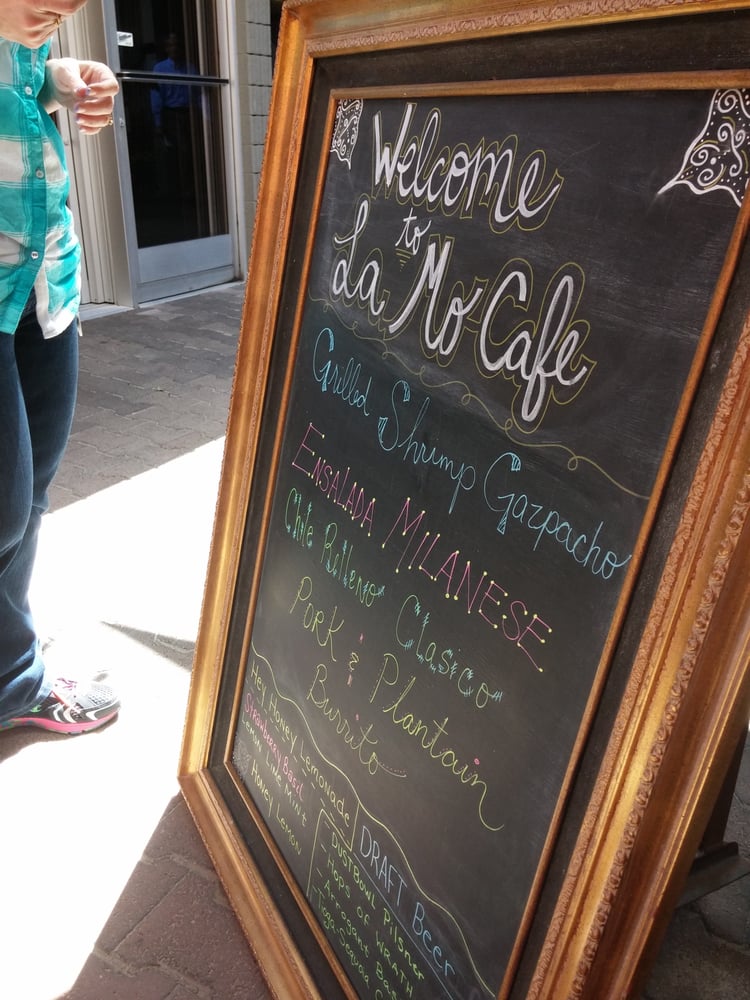 Welcome
to
La Mo Cafe
Grilled Shrimp Gazpacho
ENSALADA MILANESE
Chile Relleno Clasico
Pork & Plantain
Burrito
Hey Honey Lemonade
Strawberry Basil
Lemon Lime Mint
Honey Lemon
DRAFT Beer
- DUSTBOWL Pilsner
- Hops of WRATH
- Arrogant Bas
- Tioga-Sequoia